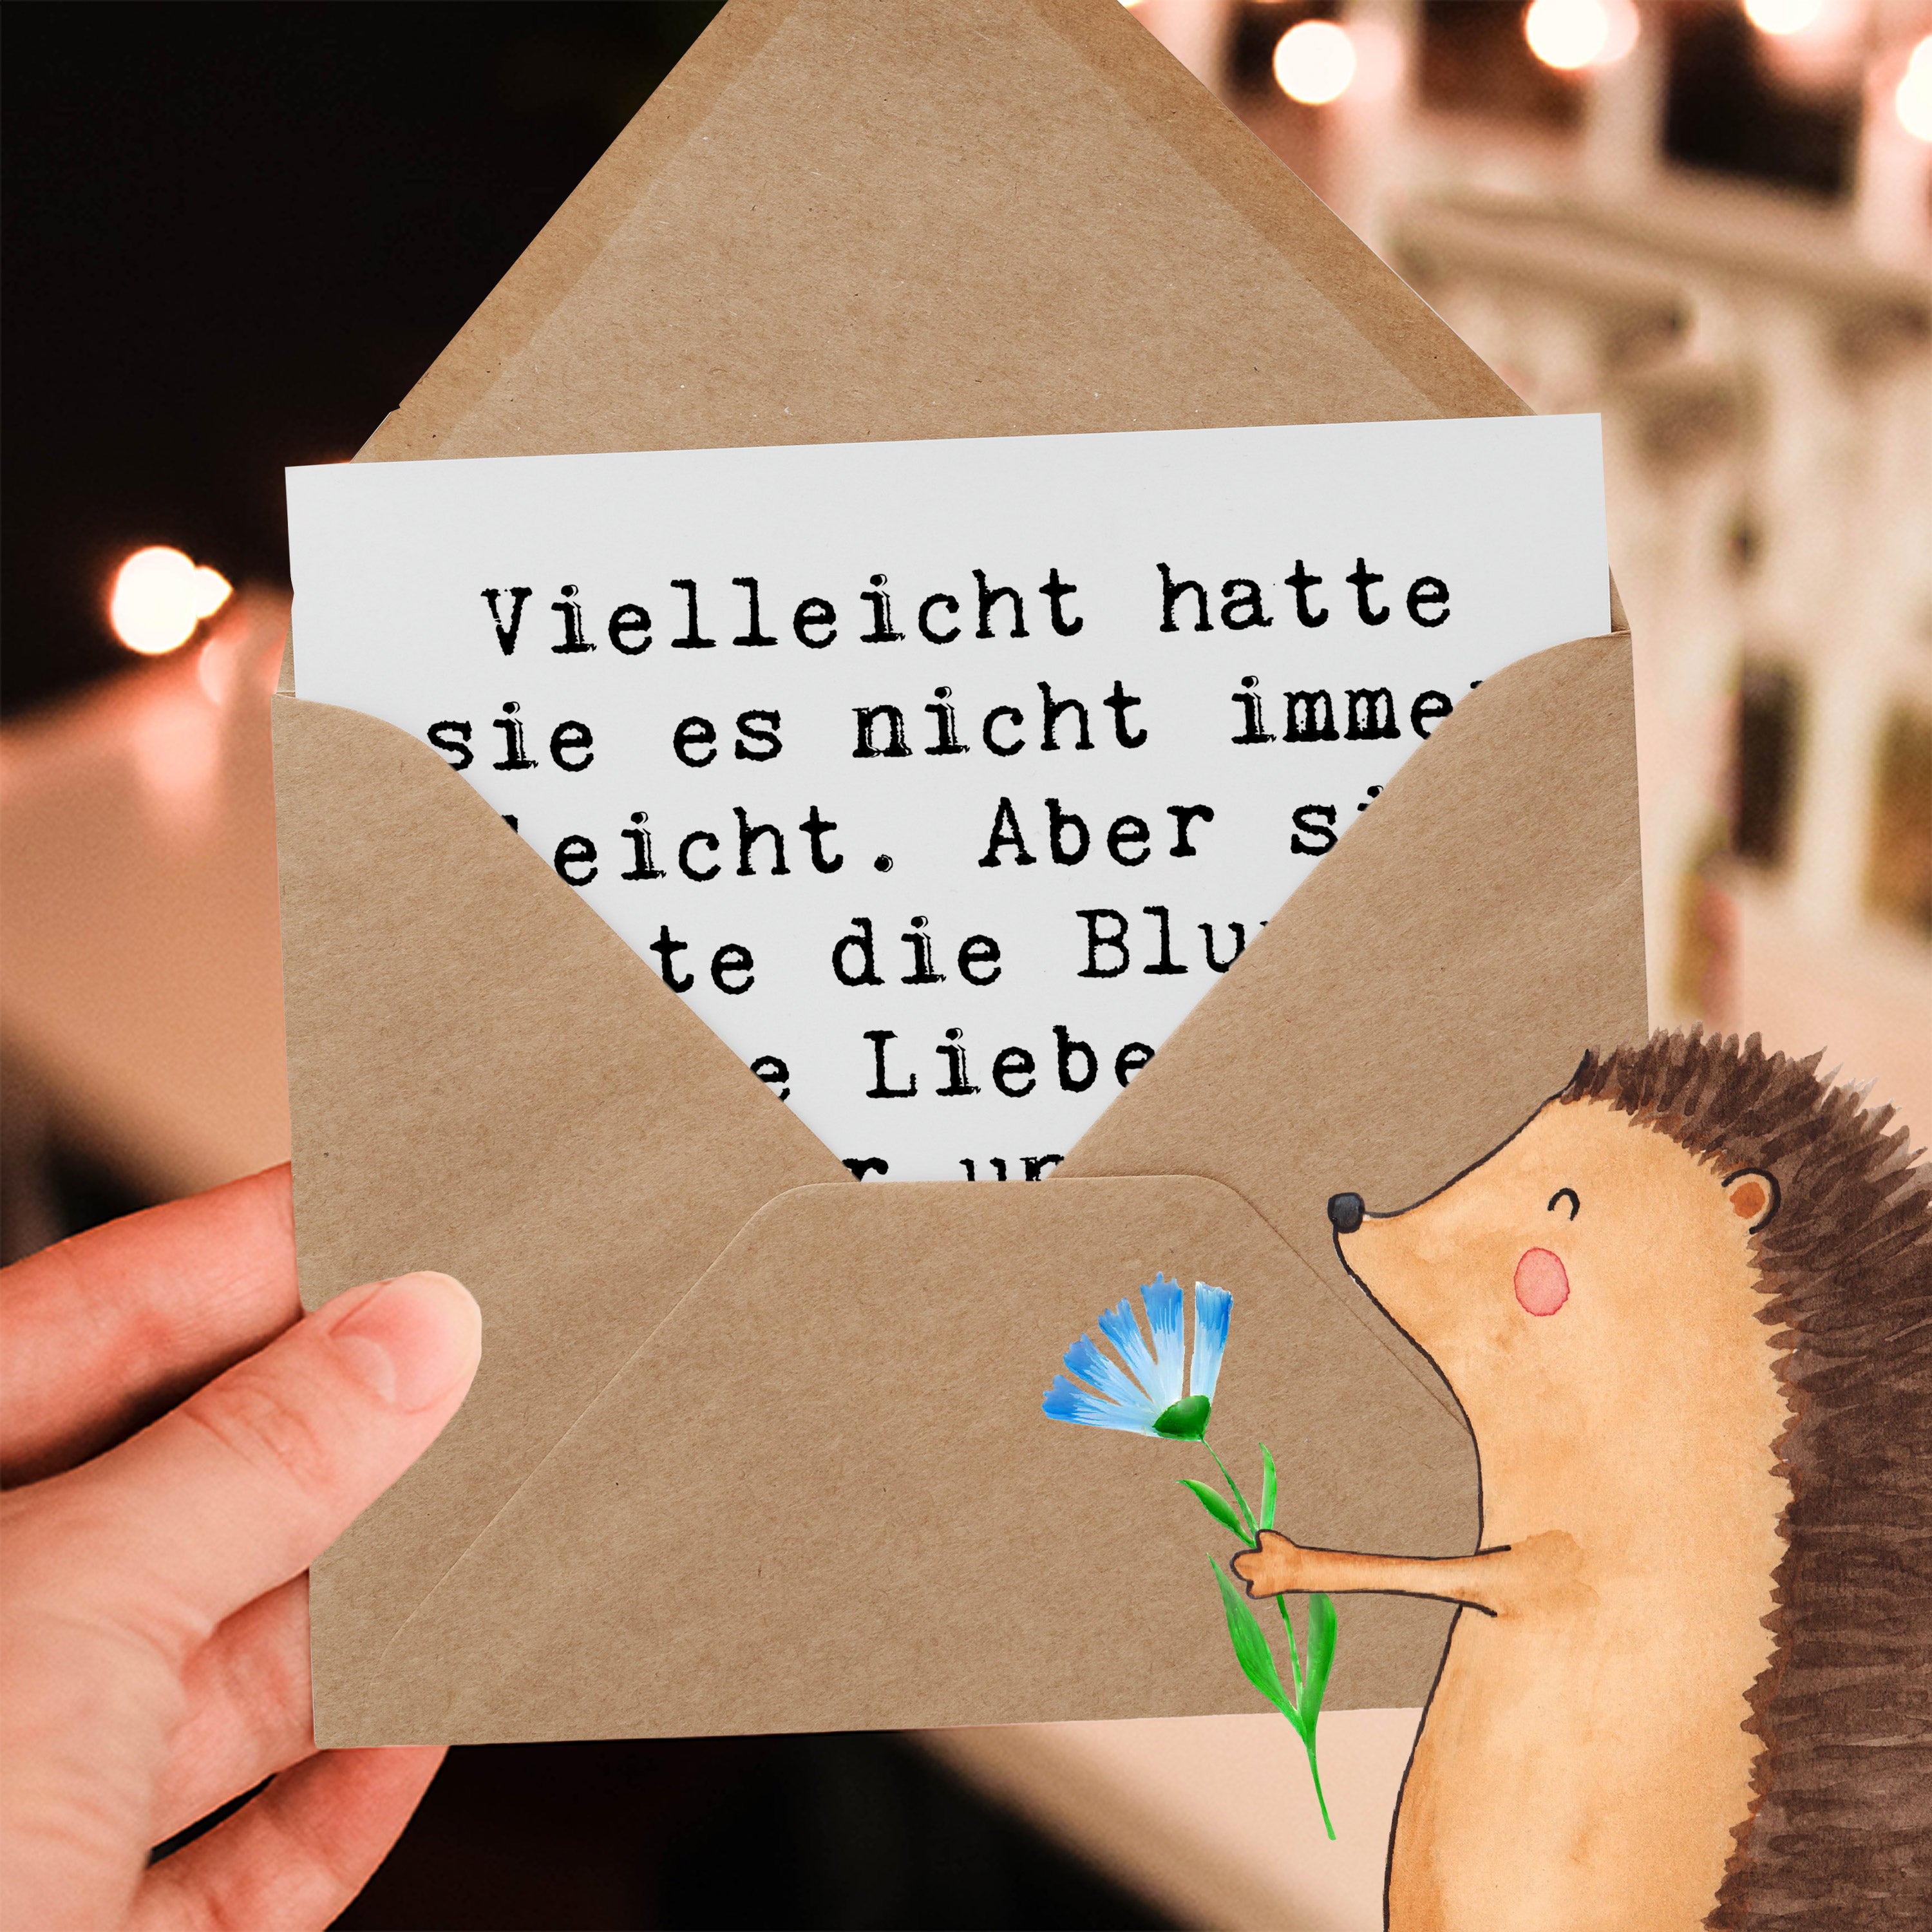 Vielleicht hatte
sie es nicht imme
leicht. Aber si
te die Blu
e Liebe
r un